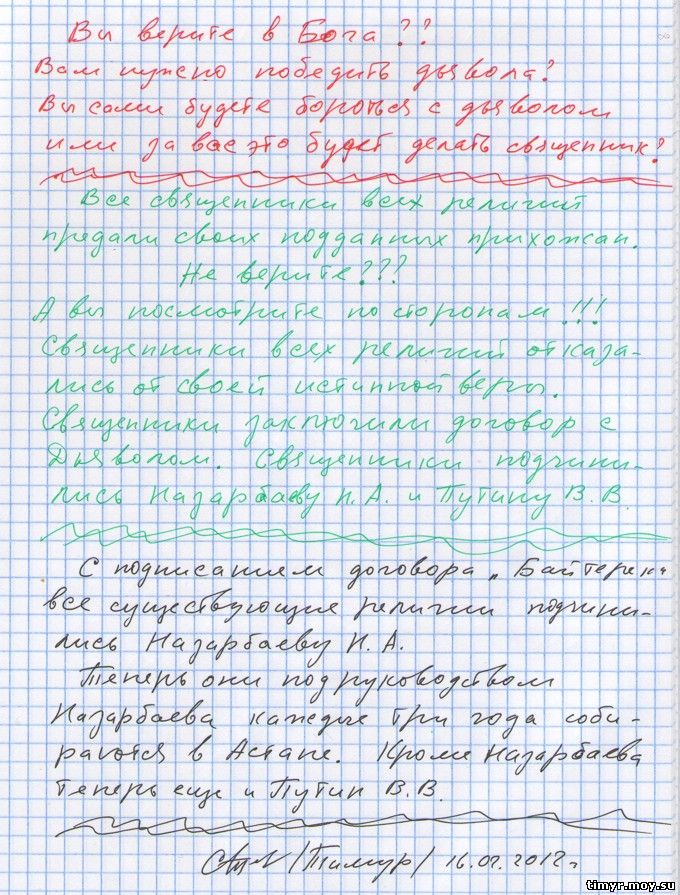 Вы верите в Бога??
Вам нужно победить дьявола?
Вы сами будете бороться с дьяволом
или за вас это будет делать священник?
Все священники всех религий
предали своих подданных прихожан.
Не верите???
А вы посмотрите по сторонам!!!
Священники всех религий отказа-
лись от своей истинной веры.
Священники заключили договор с
Дьяволом. Священники подчини-
лись Назарбаеву Н.А. и Путину В.В.
С подписанием договора „Байтерека
все существующие религии подчини-
лись Назарбаеву Н.А.
Теперь они под руководством
Назарбаева каждые три года соби-
раются в Астане. Кроме Назарбаева
теперь еще и Путин В.В.
/Тимур/ 16.02.2012г
timyr.moy.su